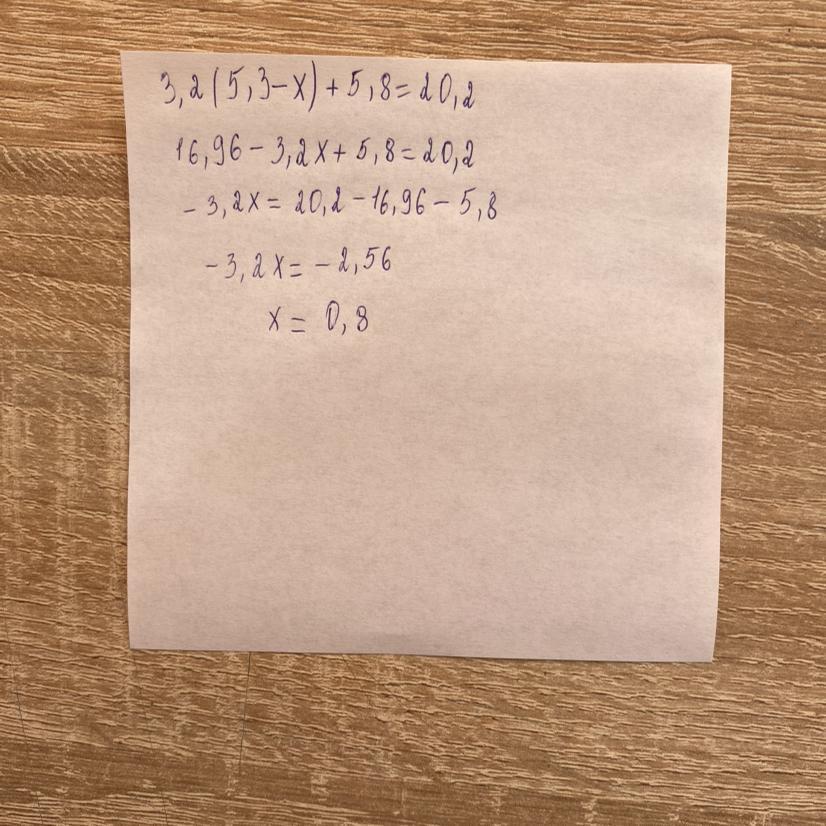 3,2(5,3-x)+5,8=20,2
16,96-3,2x+5,8=20,2
-3,2x=20,2-16,96-5,8
-3,2x=-2,56
x=0,8